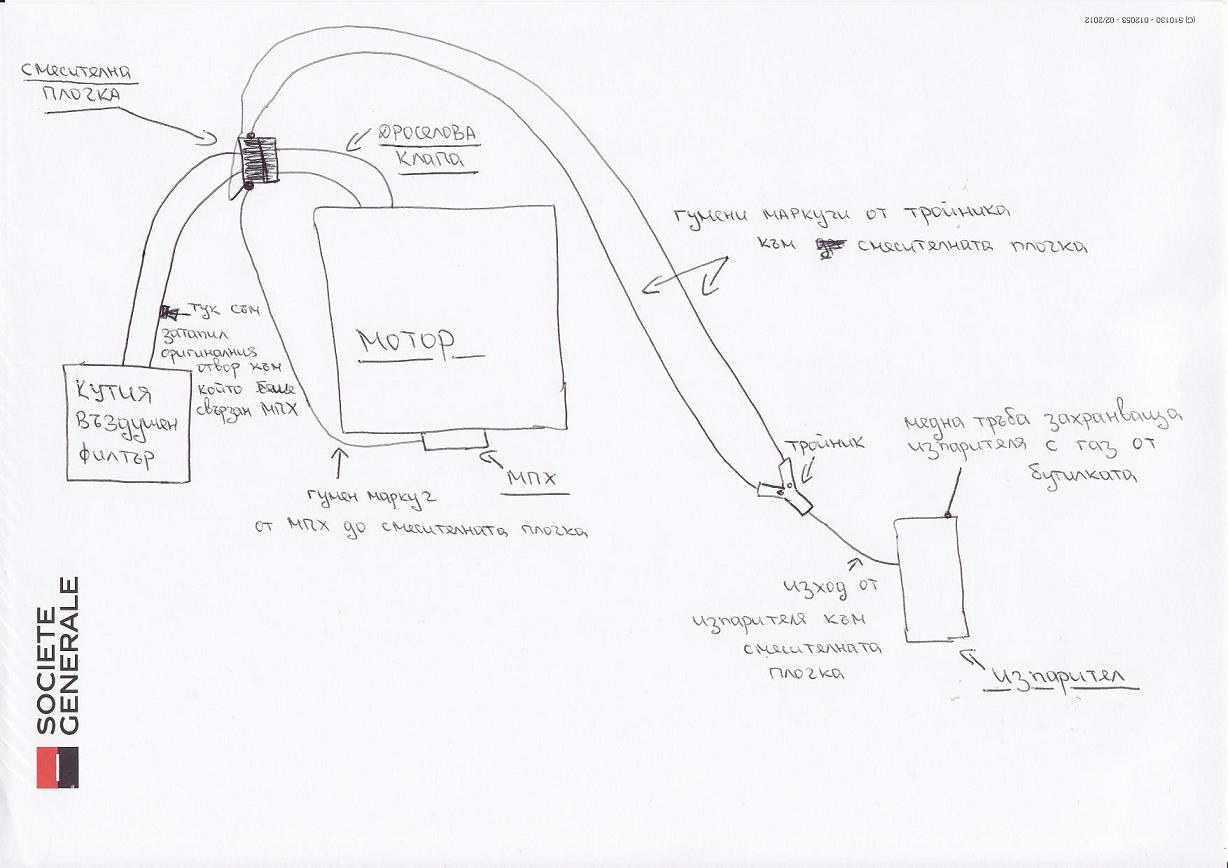 (C) 510130 - 012053 - 02/2012
смесителна
плочка
дроселова
клапа
гумени маркучи от тройника
към смесителната плочка
тук съм
затапил
оригиналния
отвор към
който беше
свързан МПХ
МОТОР
КУТИЯ
ВЪЗДУШЕН
ФИЛТЪР
МПХ
гумен маркуч
от МПХ до смесителната плочка
тройник
медна тръба захранваща
изпарителя с газ от
бутилката
изход от
изпарителя към
смесителната
плочка
изпарител
SOCIETE
GENERALE